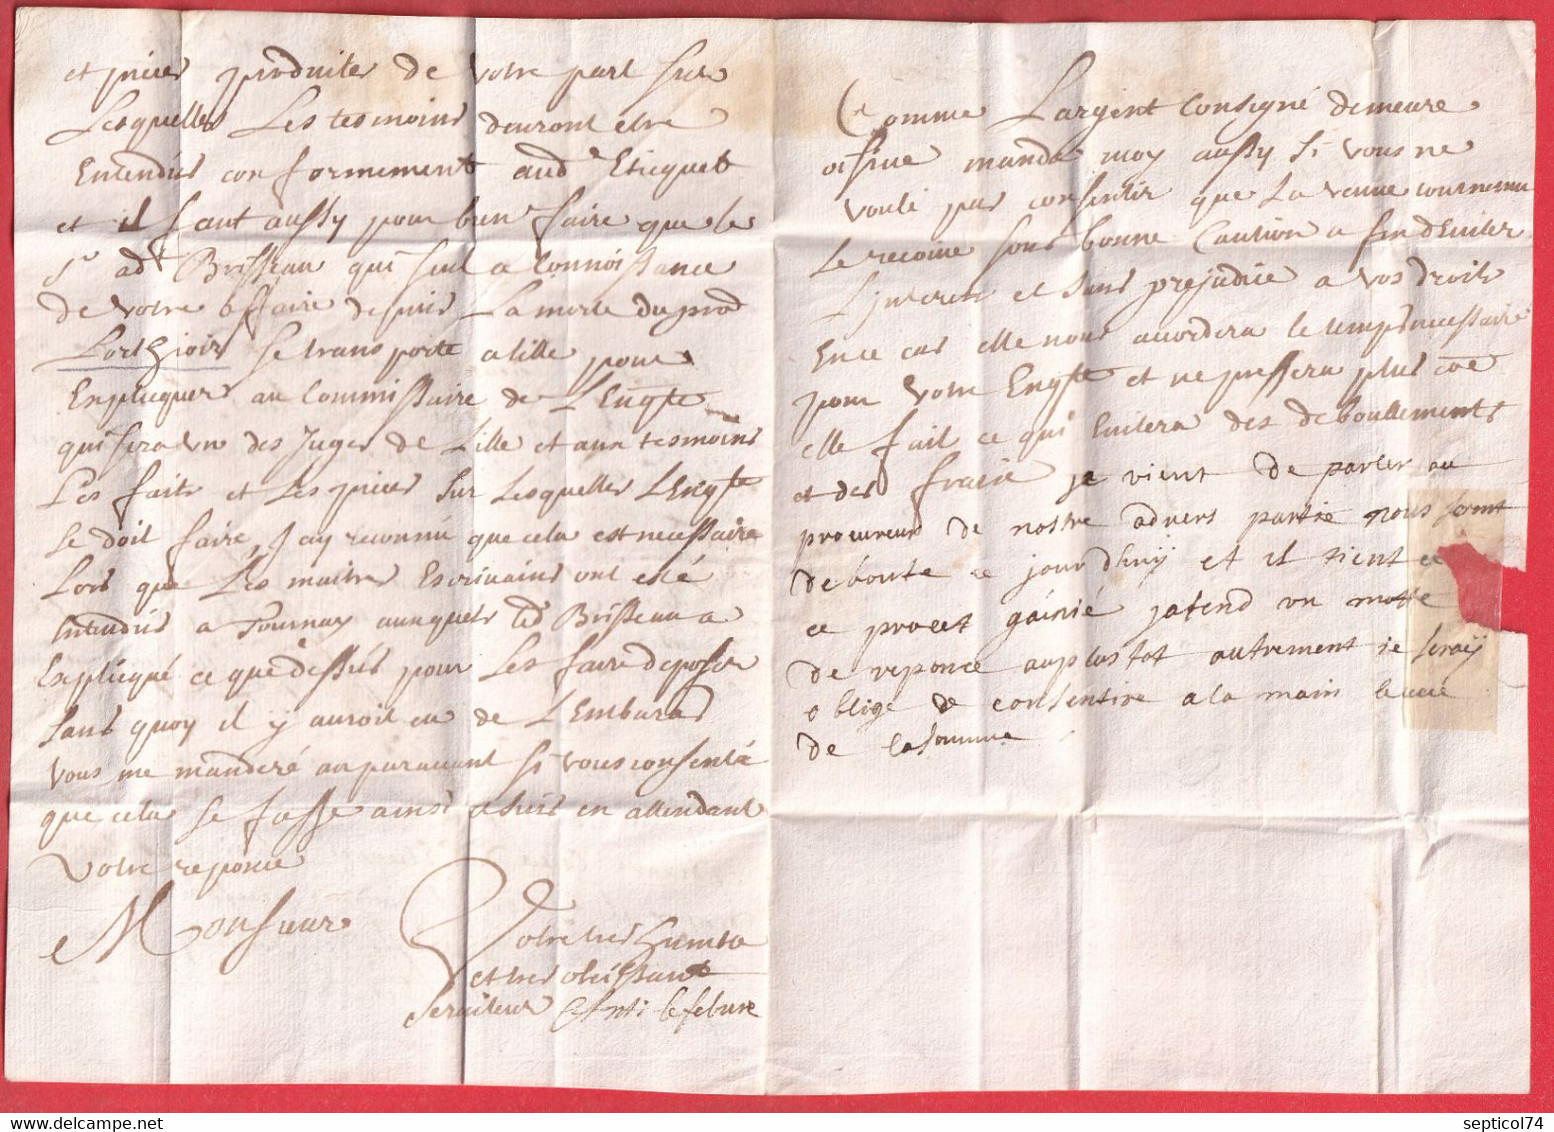 et pieces produites de votre part sur
Lesquelles Les tesmoins devront etre
Entendus conformement aud Eticquet
et il faut aussy pour bien faire que le
Sr ad Brisseau qui seul a Connoissance
de votre affaire depuis La morte du
Lorthioir se transporte a lille pour
Explicquer au Commissaire de L'Enqte
qui sera un des Juges de Lille et aux tesmoins
Les faits et Les pieces sur Lesquelles L'Enqte
se doit faire, J'ay reconnu que cela est necessaire
Lors que Les maitres Escrivains ont esté
Entendus a Tournay auxquels led Brisseau a
Explicqué ce que dessus pour Les faire deposer
sans quoy il y auroit eu de L'Embaras
vous me manderé auparavant si vous consenté
que cela se fasse ainsi en attendant
votre reponce
Monsieur
Votre tres humble
et tres obeissant
serviteur lefebure
Comme L'argent Consigné demeure
oisive mandé moy aussy si vous ne
voulé pas consentir que La veuve
Le recoive sous bonne Caution a fin d'Eviter
L'Jnterets et sans prejudice a vos droits
En ce cas elle nous accordera le temps necessaire
pour votre Enqte et ne pressera plus coe
elle fait ce qui Evitera des deboullements
et des fraix je vient de parler au
procureur de nostre advers partie nous
deboute ce jourdhuy et il tient ce
ce procet gainié jatend un mote
de reponce au plus tot autrement je seray
oblige de consentire a la main levée
de la somme
septicol74